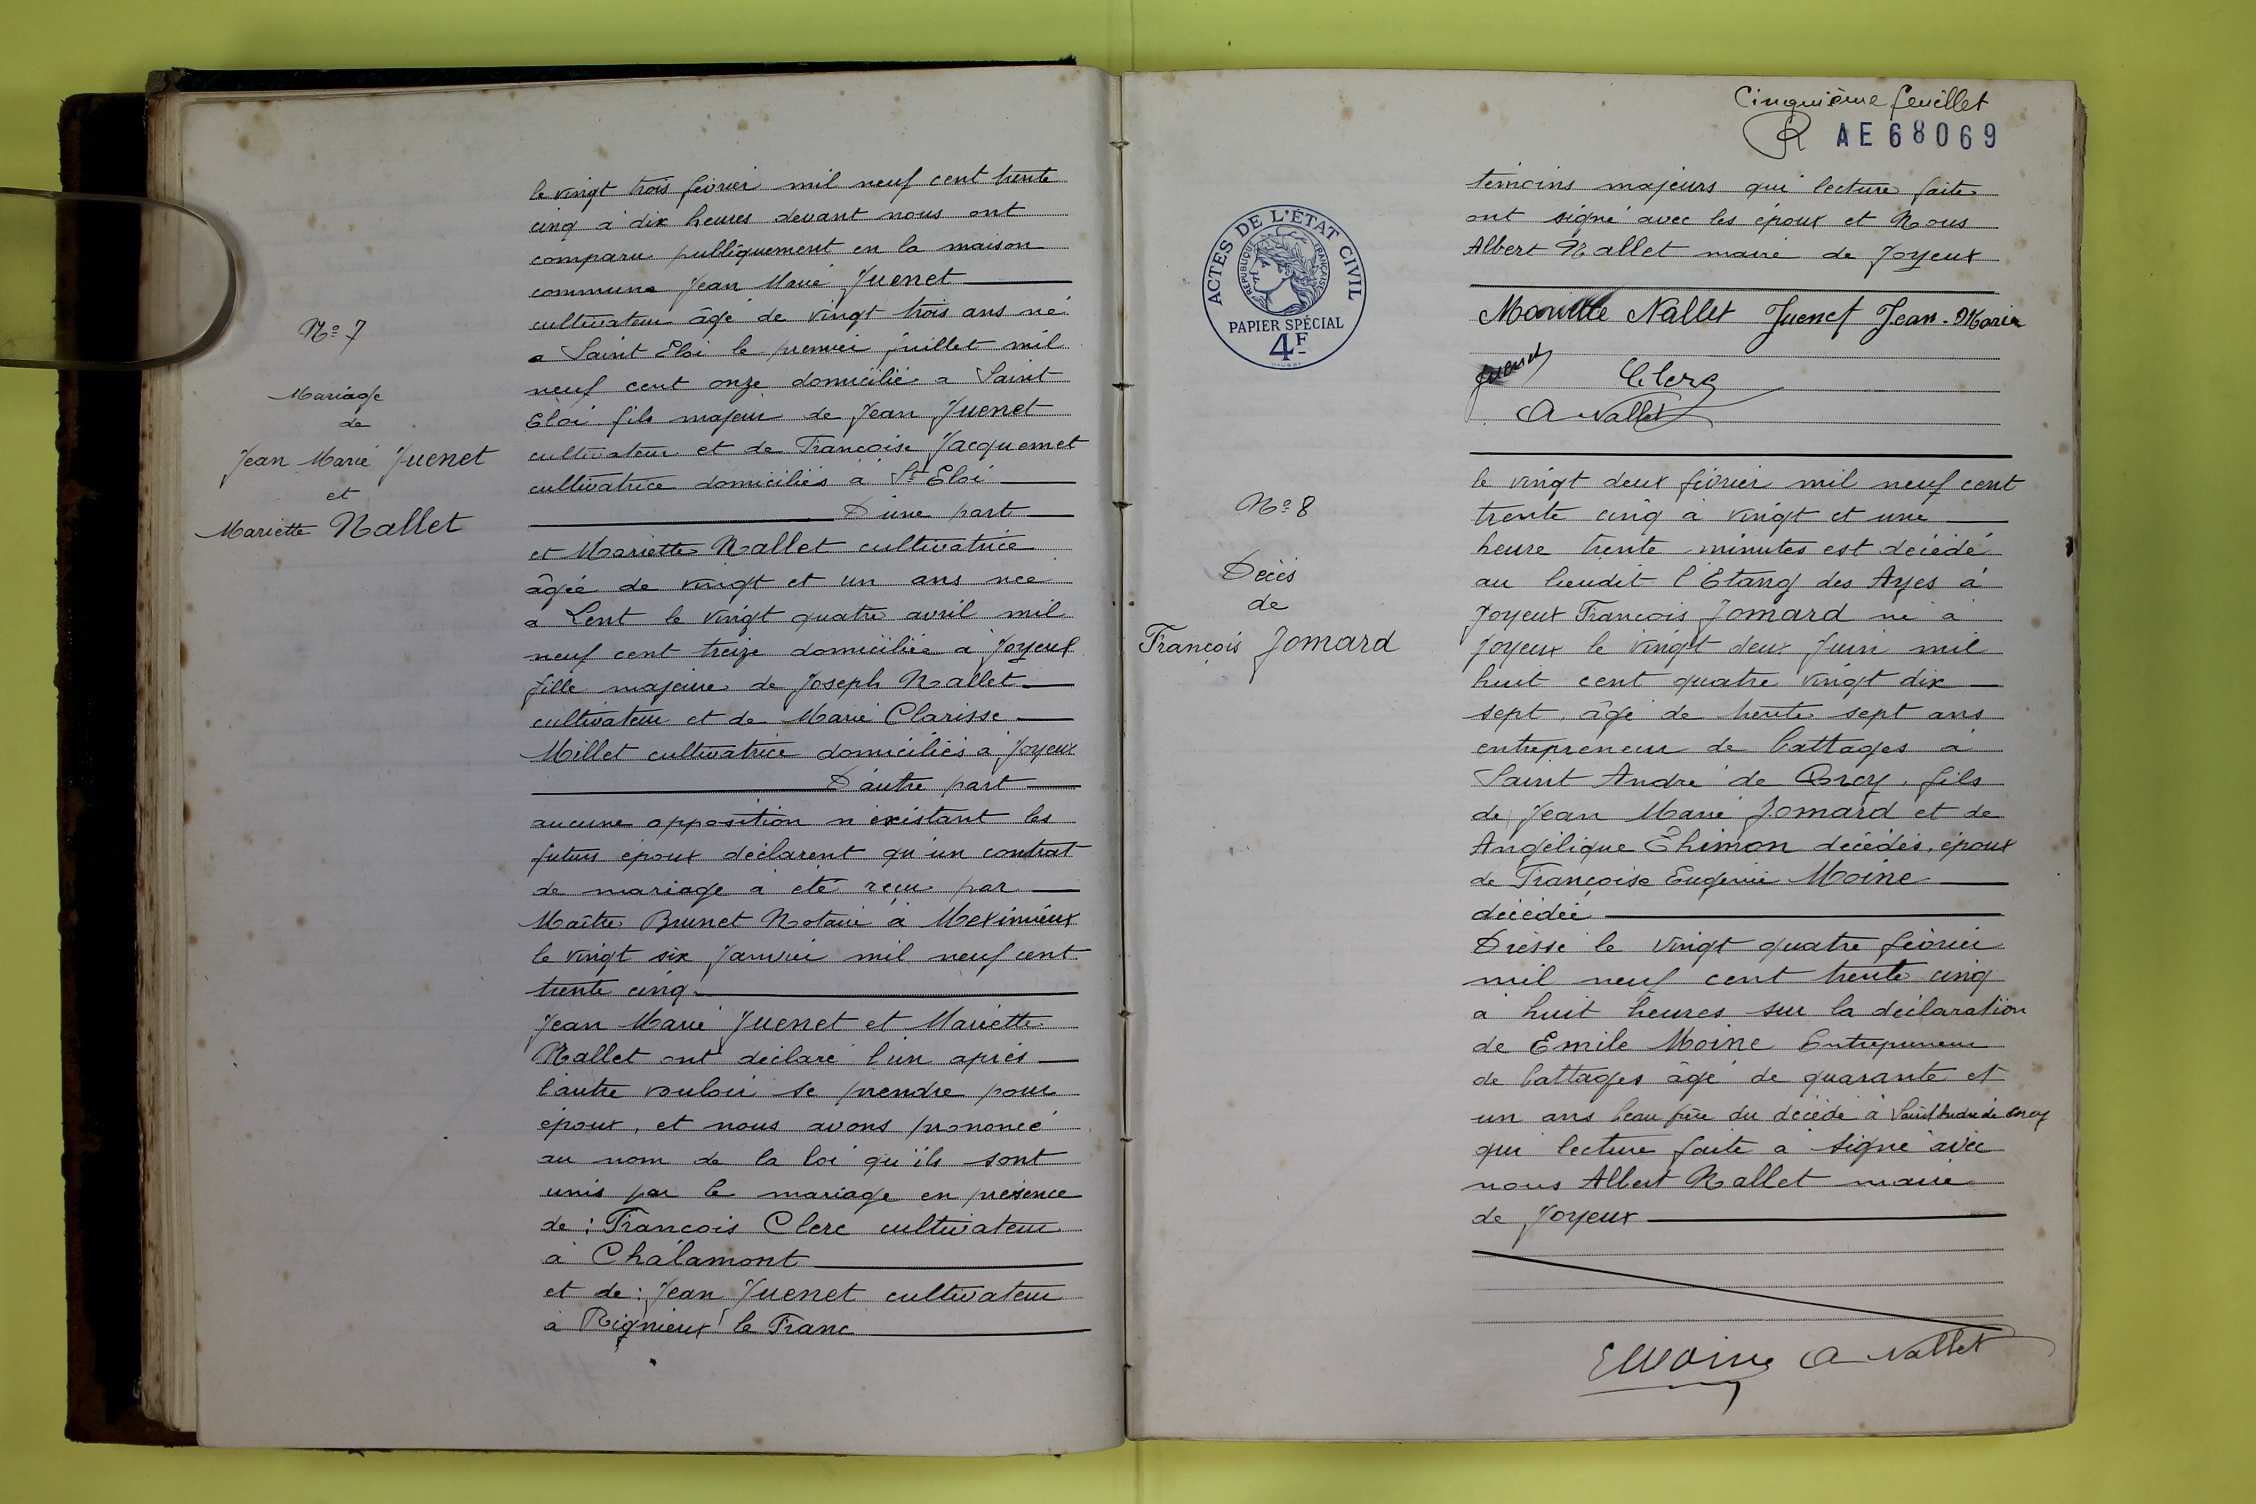 No 7
Mariage
de
Jean Marie Juenet
et
Mariette Nallet
le vingt trois février mil neuf cent trente
cinq à dix heures devant nous ont
comparu publiquement en la maison
commune Jean Marie Juenet
cultivateur âgé de vingt trois ans né
a Saint Eloi le premier juillet mil
neuf cent onze domicilié a Saint
Eloi fils majeur de Jean Juenet
cultivateur et de Françoise Jacquemet
cultivatrice domiciliés à St Eloi
D'une part
et Mariette Nallet cultivatrice
âgée de vingt et un ans née
a Lent le vingt quatre avril mil
neuf cent treize domiciliée à Joyeux
fille majeure de Joseph Nallet
cultivateur et de Marie Clarisse
Millet cultivatrice domiciliés à Joyeux
D'autre part
aucune opposition n'existant les
futurs époux déclarent qu'un contrat
de mariage a été reçu par
Maître Brunet Notaire à Meximieux
le vingt six Janvier mil neuf cent
trente cinq
Jean Marie Juenet et Mariette
Nallet ont déclaré l'un après
l'autre vouloir se prendre pour
époux, et nous avons prononcé
au nom de la loi qu'ils sont
unis par le mariage en présence
de : François Clerc cultivateur
à Châlamont
et de : Jean Juenet cultivateur
à Rignieux le Franc
Cinquième feuillet
R AE68069
ACTES DE L'ÉTAT CIVIL
RÉPUBLIQUE FRANÇAISE
PAPIER SPÉCIAL
4F
témoins majeurs qui lecture faite
ont signé avec les époux et Nous
Albert Nallet maire de Joyeux
Mariette Nallet Juenet Jean-Marie
Juenet Clerc
A Nallet
No 8
Décès
de
François Jomard
le vingt deux février mil neuf cent
trente cinq à vingt et une
heure trente minutes est décédé
au lieudit l'Etang des Ayes à
Joyeux François Jomard né a
Joyeux le vingt deux Juin mil
huit cent quatre vingt dix
sept, âgé de trente sept ans
entrepreneur de battages à
Saint André de Corcy, fils
de Jean Marie Jomard et de
Angélique Thimon décédés, époux
de Françoise Eugénie Moine
décédée
Dressé le vingt quatre février
mil neuf cent trente cinq
à huit heures sur la déclaration
de Emile Moine Entrepreneur
de battages âgé de quarante et
un ans beau frère du décédé à Saint André de Corcy
qui lecture faite a signé avec
nous Albert Nallet maire
de Joyeux
E Moine A Nallet